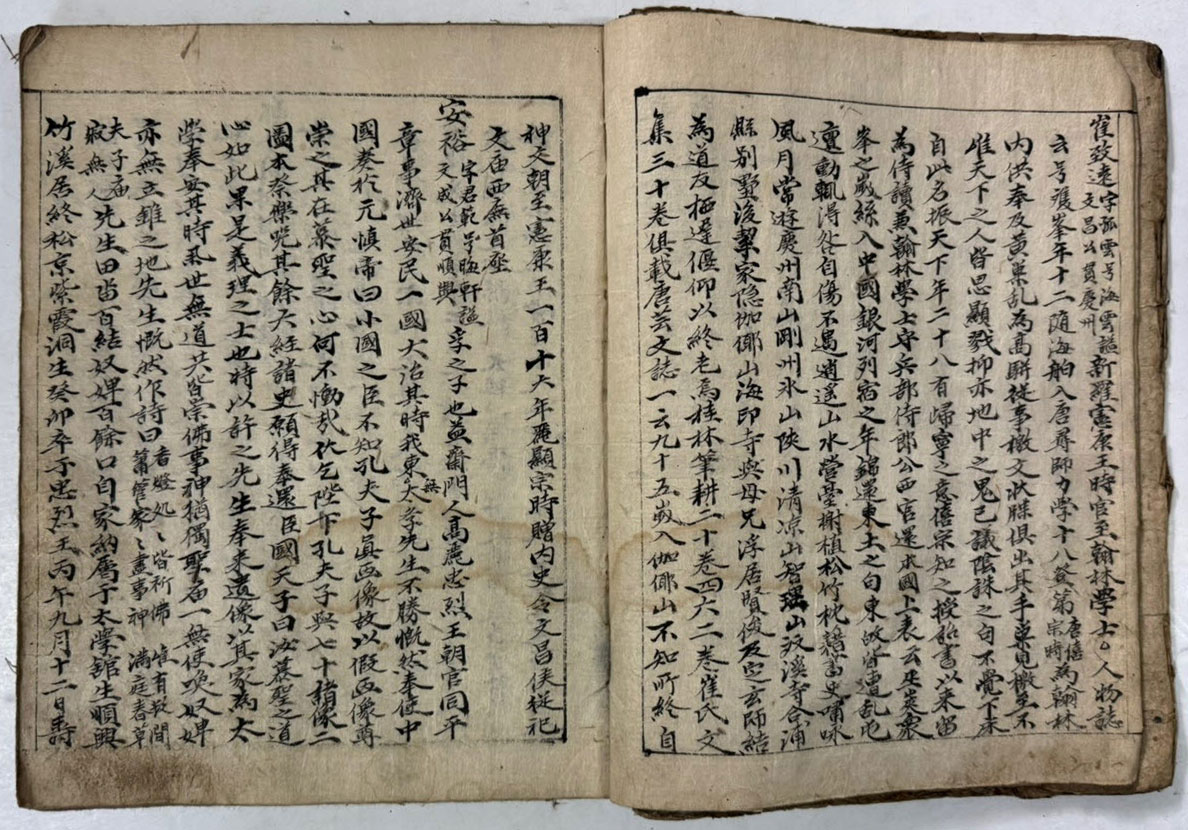 崔致遠 字孤雲号海雲謚 文昌公貫慶州 新羅憲康王時官至翰林學士○人物誌
云号獐峯年十二随海舶入唐尋師力學十八登第 唐僖宗時 為翰林
内供奉及黄巢乱為高騈従事檄文状牒俱出其手草見檄至不
唯天下之人皆思顯戮抑亦地中之鬼已議陰誅之句不覺下床
自此名振天下年二十八有歸寧之意僖宗知之授詔書以来留
為侍讀兼翰林學士守兵部侍郎公西宦還本國上表云巫峽衆
峯之歳絲入中國銀河列宿之年錦還東土之句東敀皆遭乱屯
邅動輒得咎自傷不遇逍遥山水營臺榭植松竹枕籍書史嘯咏
風月常遊慶州南山剛州氷山陜川清凉山智理山双溪寺合浦
縣別墅後挈家隐伽倻山海印寺與母兄浮居賢俊及定玄師結
為道友栖遅偃仰以終老焉桂林筆耕二十巻四六二巻崔氏文
集三十巻俱載唐芸文誌一云九十五歳入伽倻山不知所終自
神文朝至憲康王一百十六年麗顯宗時贈内史令文昌侯従祀
文庙西廡首座
安裕 字君範号晦軒謚 文成公貫順興 孚之子也益齋門人高麗忠烈王朝官同平
章事濟世安民一國大治其時我東大無孝先生不勝慨然奉使中
國奏於元慎帝曰小國之臣不知孔夫子眞画像故以假画像尊
崇之其在慕聖之心何不慟哉伏乞陛下孔夫子與七十諸像二
圖本祭樂児其餘六経諸史願得奉還臣國天子曰汝慕聖之道
心如此果是義理之士也特以許之先生奉来遺像以其家為太
學奉安其時乱世無道共皆崇佛事神猶獨聖庙一無使喚奴婢
亦無立錐之地先生慨然作詩曰 香燈処〻皆祈佛 簫管家〻盡事神 惟有数間 満庭春草
夫子庙 寂無人 先生田畓百結奴婢百餘口自家納屬于太學舘生順興
竹溪居終松京紫霞洞生癸卯卒于忠烈王丙午九月十二日壽